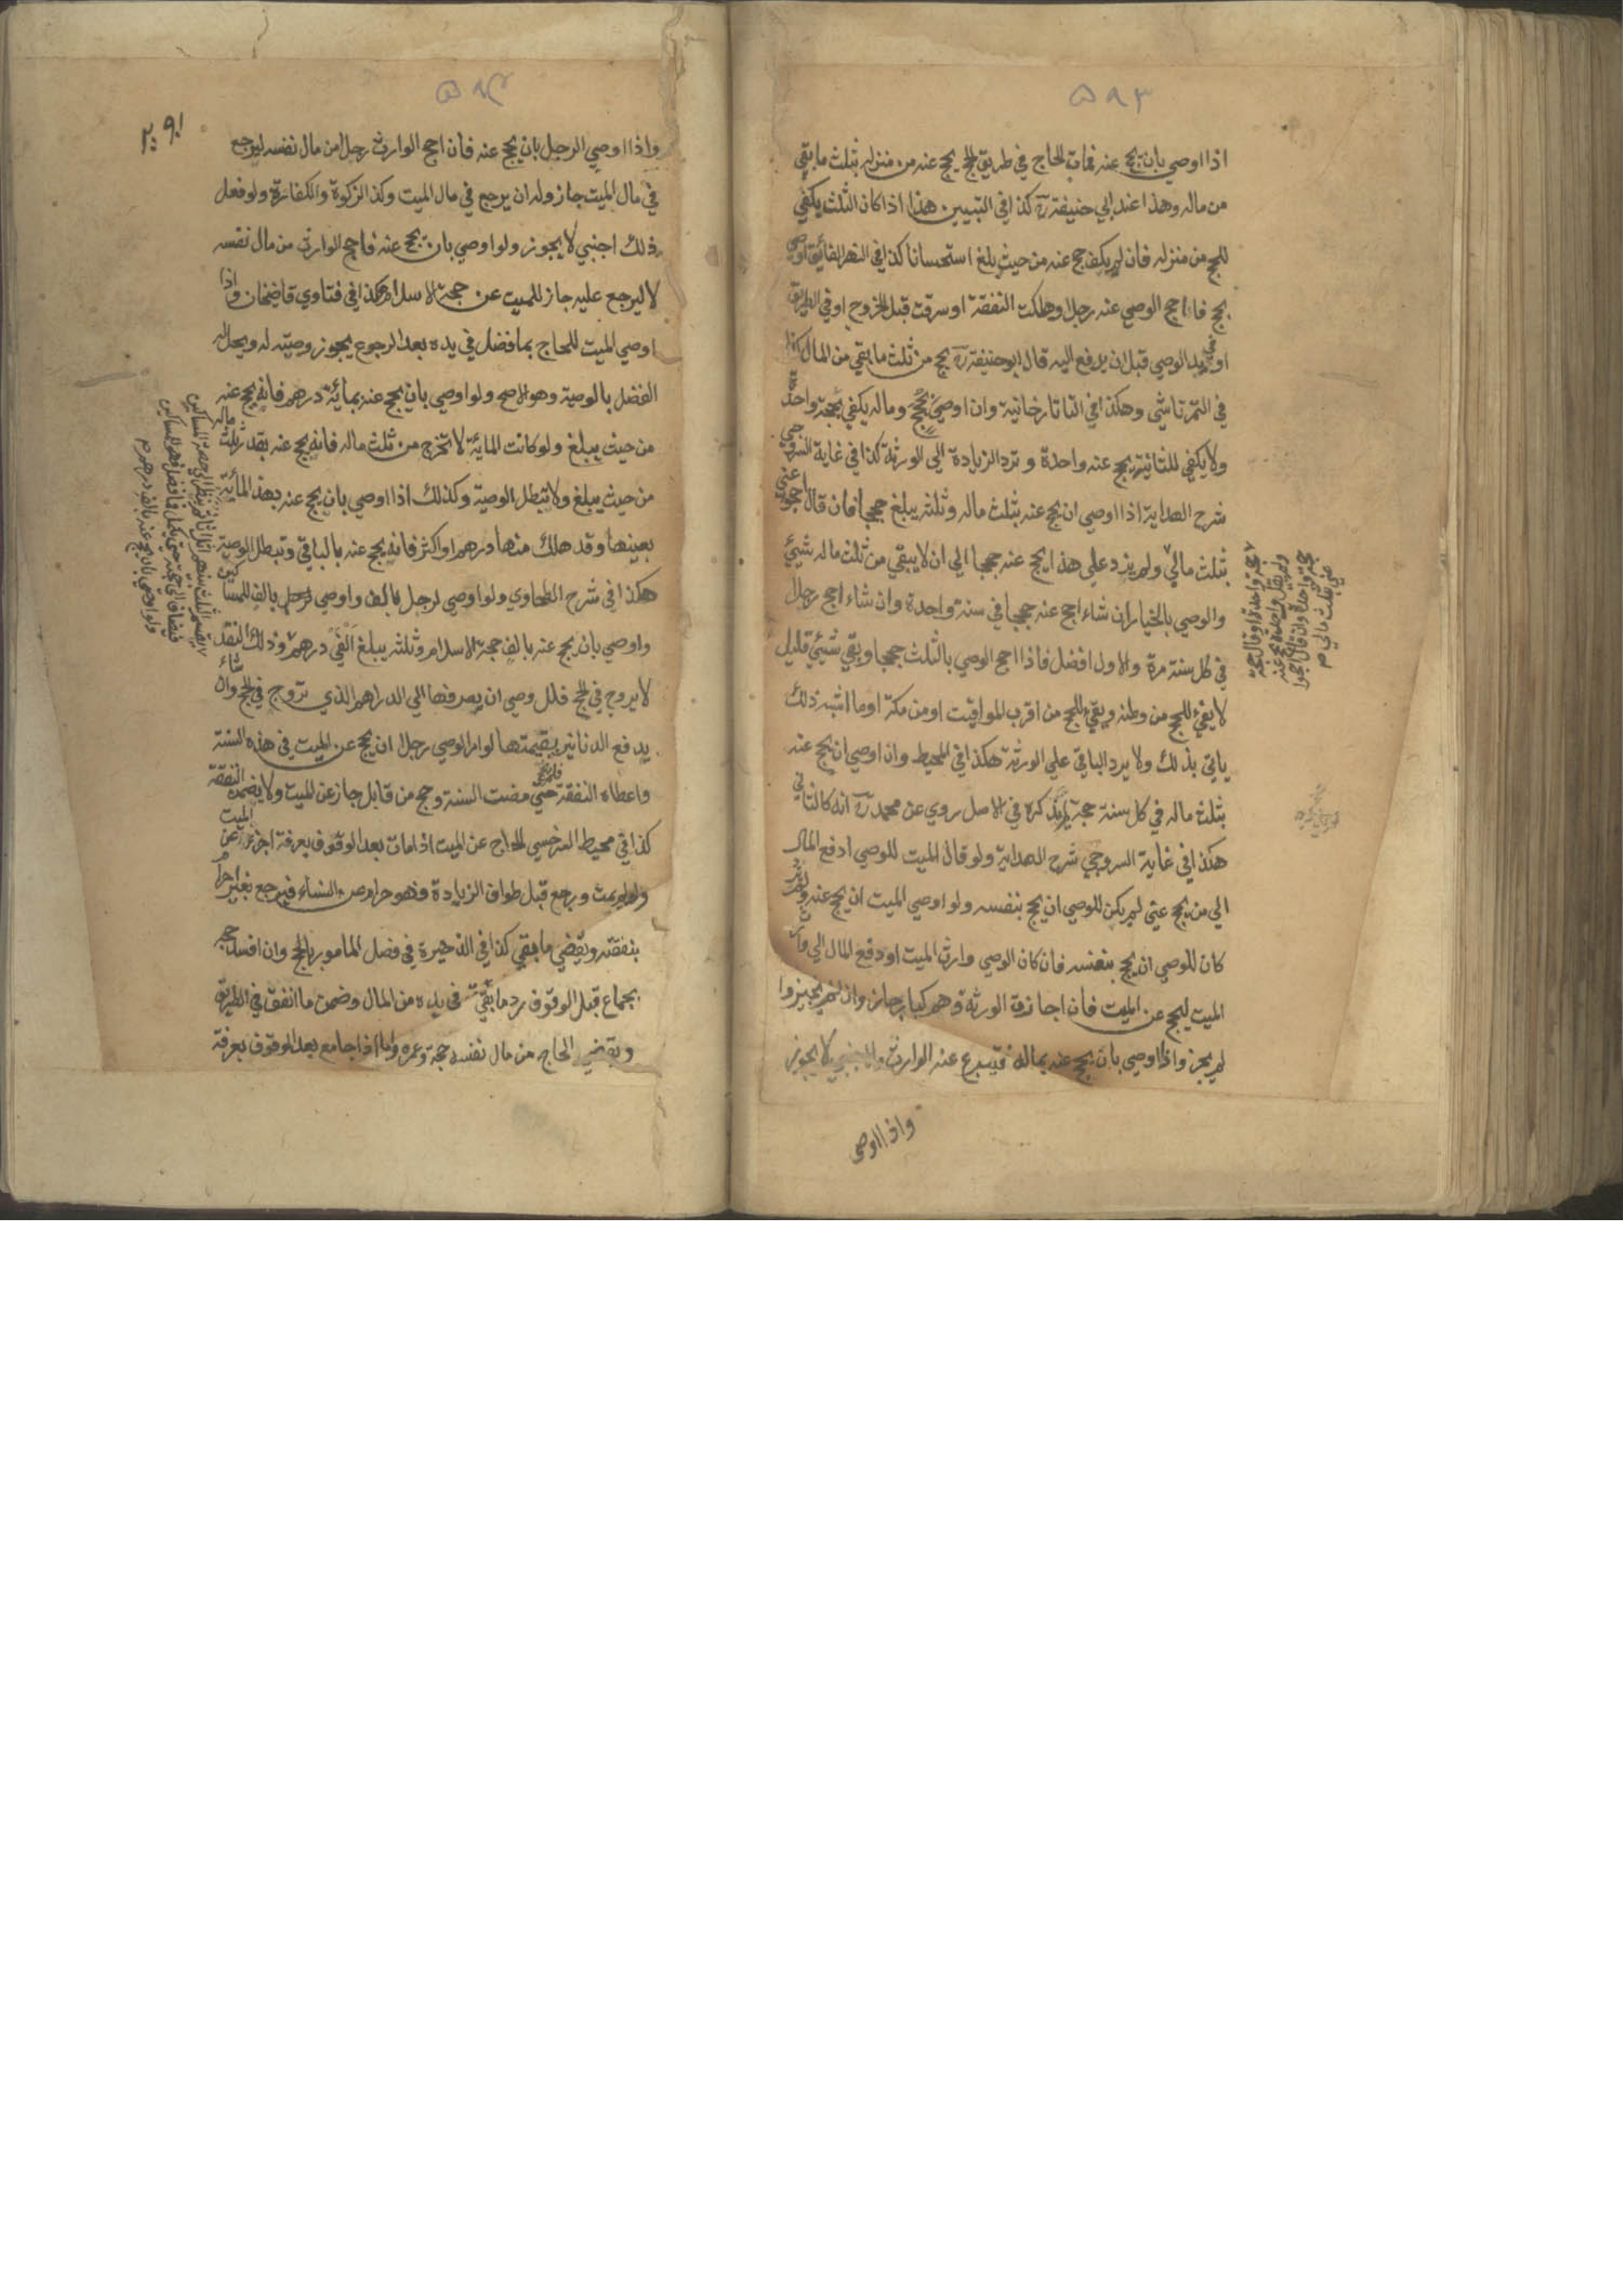 ٥٩٣
اذا اوصي بان يحج عنه فمات الحاج في طريق الحج يحج عنه من منزله بثلث ما بقي
من ماله وهذا عند ابي حنيفة رح كذا في التبيين هذا اذا كان الثلث يكفي
للحج من منزله فان لم يكف حج عنه من حيث بلغ استحسانا كذا في النهر الفائق اوصي
بحج فاحج الوصي عنه رجلا وهلكت النفقة او سرقت قبل الخروج او في الطريق
او في يد الوصي قبل ان يدفع اليه قال ابو حنيفة رح يحج من ثلث ما بقي من المال كذا
في التمرتاشي وهكذا في التاتارخانية وان اوصي بحج وماله يكفي بحجة واحدة
ولا يكفي للثانية يحج عنه واحدة وترد الزيادة الي الورثة كذا في غاية السروجي
شرح الهداية اذا اوصي ان يحج عنه بثلث ماله وثلثه يبلغ حججا فان قال احجوا عني
بثلث مالي ولم يزد علي هذا يحج عنه حججا الي ان لا يبقي من ثلث ماله شيئ
والوصي بالخيار ان شاء احج عنه حججا في سنة واحدة وان شاء احج رجلا
في كل سنة مرة والاول افضل فاذا احج الوصي بالثلث حججا وبقي شيئ قليل
لا يفي للحج من وطنه ويفي للحج من اقرب المواقيت او من مكة او ما اشبه ذلك
ياتي بذلك ولا يرد الباقي علي الورثة هكذا في المحيط وان اوصي ان يحج عنه
بثلث ماله في كل سنة حجة لم يذكره في الاصل روي عن محمد رح انه كالثاني
هكذا في غاية السروجي شرح الهداية ولو قال الميت للوصي ادفع المال
الي من يحج عني لم يكن للوصي ان يحج بنفسه ولو اوصي الميت ان يحج عنه ولم يزد
كان للوصي ان يحج بنفسه فان كان الوصي وارث الميت او دفع المال الي وارث
الميت ليحج عن الميت فان اجازت الورثة وهم كبار جاز وان لم يجيزوا
لم يجز واذا اوصي بان يحج عنه بماله فتبرع عنه الوارث والاجنبي لا يجوز
واذا اوصي
حجة واحدة او قال حجة
ولم يقل واحدة يحج عنه
حجة واحدة وان قال احجوا
عني بثلث مالي
٥٩٤
واذا اوصي الرجل بان يحج عنه فان احج الوارث رجلا من مال نفسه ليرجع
في مال الميت جاز وله ان يرجع في مال الميت وكذا الزكوة والكفارة ولو فعل
ذلك اجنبي لا يجوز ولو اوصي بان يحج عنه فاحج الوارث من مال نفسه
لا ليرجع عليه جاز للميت عن حجة الاسلام هكذا في فتاوي قاضيخان واذا
اوصي الميت للحاج بما فضل في يده بعد الرجوع يجوز وصيته له ويحل له
الفضل بالوصية وهو الاصح ولو اوصي بان يحج عنه بمائة درهم فانه يحج عنه
من حيث يبلغ ولو كانت المائة لا تخرج من ثلث ماله فانه يحج عنه بقدر ثلث ماله
من حيث يبلغ ولا تبطل الوصية وكذلك اذا اوصي بان يحج عنه بهذه المائة
بعينها وقد هلك منها درهم او اكثر فانه يحج عنه بالباقي وتبطل الوصية
هكذا في شرح الطحاوي ولو اوصي لرجل بالف واوصي بالف للمساكين
واوصي بان يحج عنه بالف حجة الاسلام وثلثه يبلغ الفي درهم وذلك النقد
لا يروج في الحج فللوصي ان يصرفها الي الدراهم الذي تروج في الحج وان شاء
يدفع الدنانير بقيمتها لو امر الوصي رجلا ان يحج عن الميت في هذه السنة
واعطاه النفقة فلم يحج حتي مضت السنة وحج من قابل جاز عن الميت ولا يضمن النفقة
كذا في محيط السرخسي الحاج عن الميت اذا مات بعد الوقوف بعرفة اجزء عن الميت
ولو لم يمت ورجع قبل طواف الزيادة فهو حرام عن النساء فيرجع بغير احرام
بنفقته ويقضي ما بقي كذا في الذخيرة في فصل المامور بالحج وان افسد حجه
بجماع قبل الوقوف رد ما بقي في يده من المال وضمن ما انفق في الطريق
ويقضي الحاج من مال نفسه حجة وعمرة واما اذا جامع بعد الوقوف بعرفة
يقسم الثلث بينهم اثلاثا ثم ينظر الي حصة المساكين
فيضاف الي حجة حتي يكمل فما فضل فهو للمساكين
ولو اوصي بان يحج عنه بالف درهم